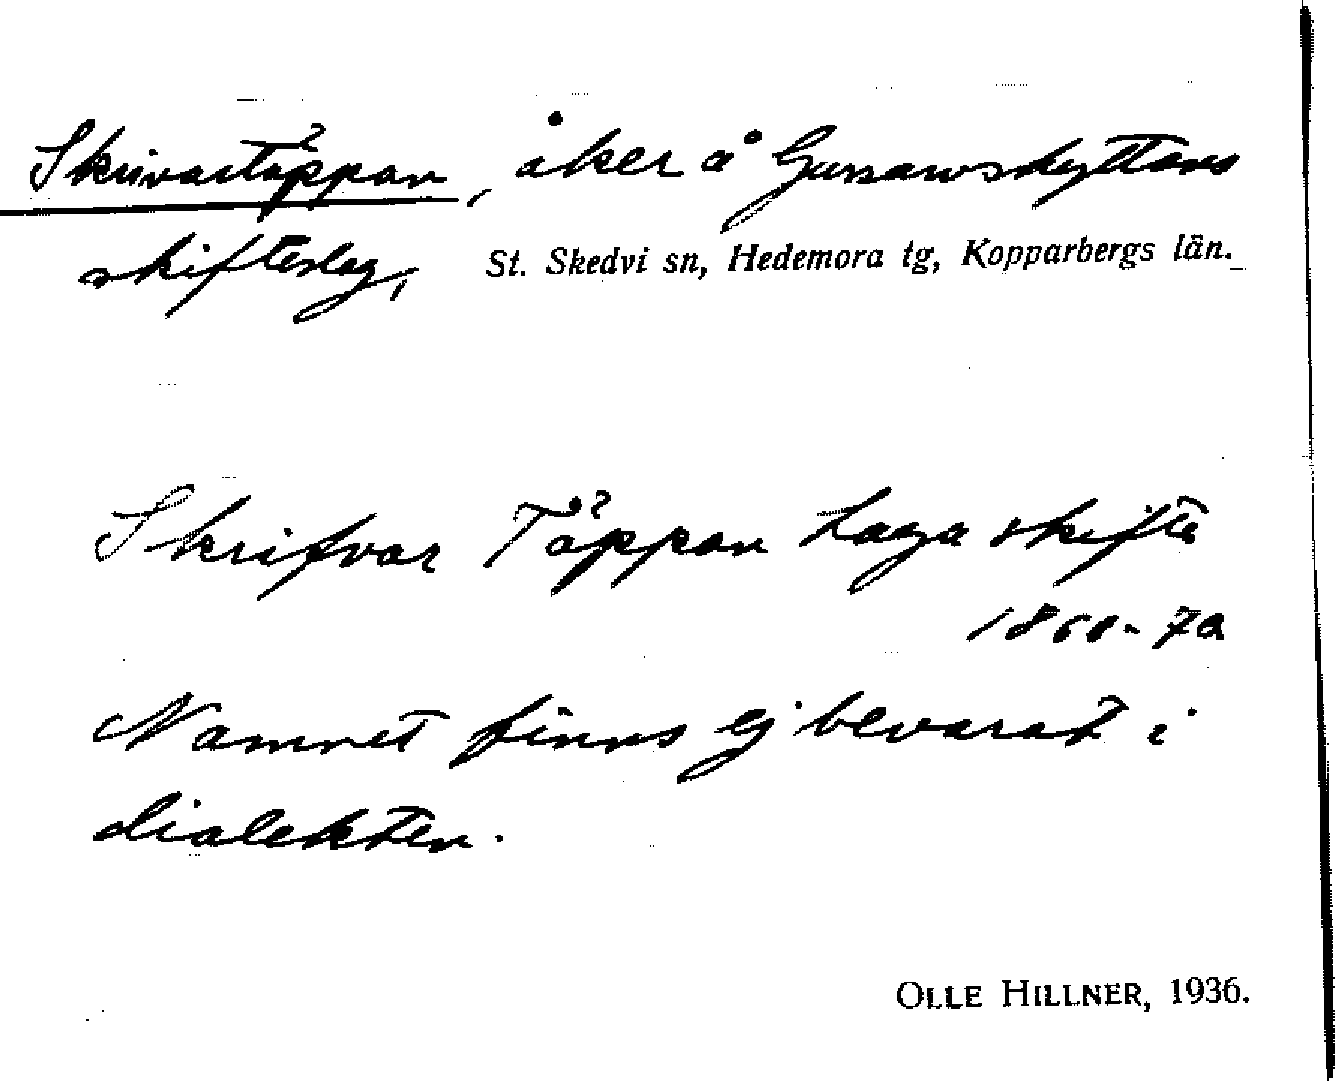 Skrivartäppan, åker å Gussawshyttans
skifteslag, St. Skedvi sn, Hedemora tg, Kopparbergs län.
Skrifvar Täppan Laga skifte
1860-70
Namnet finns ej bevarat i
dialekten.
OLLE HILLNER, 1936.